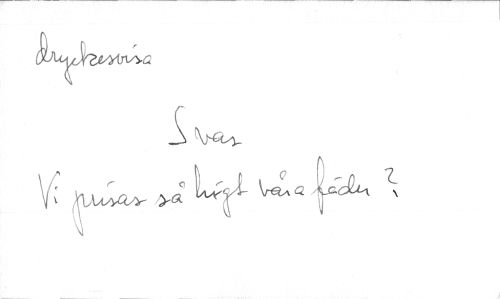 dryckesvisa
Svar
Vi prisas så högt våra fäder?